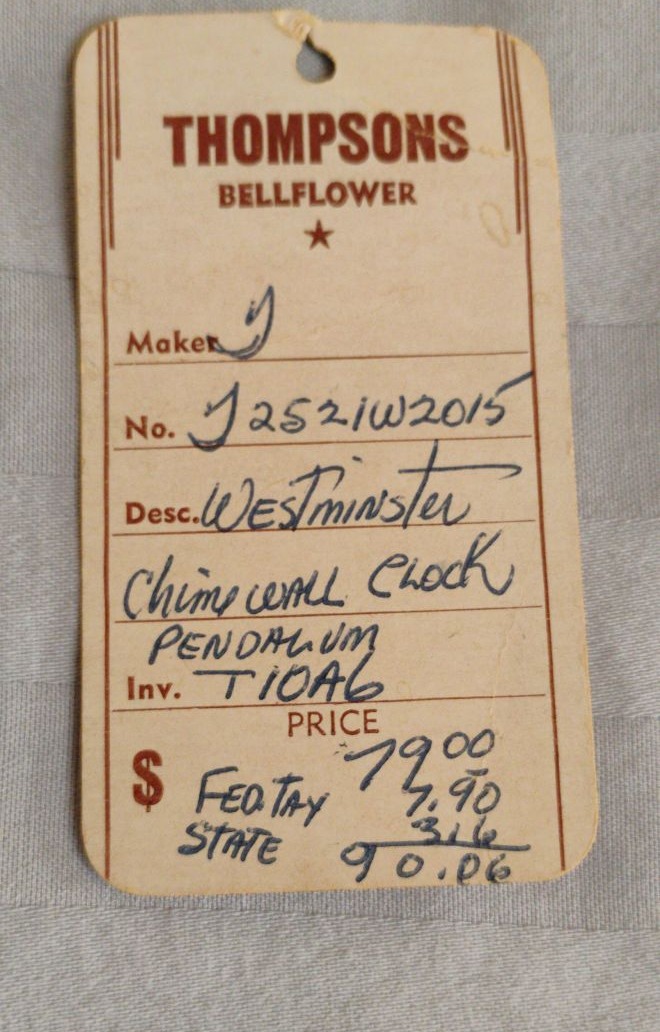 THOMPSONS
BELLFLOWER
Maker J
No. J2521W2015
Desc. Westminster
Chime WALL Clock
PENDALUM
Inv. T10A6
PRICE
$ 79 00
FED. TAX 7.90
STATE 3.16
90.06